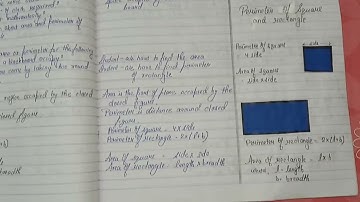 of work required?
mathematics?
about area and perimeter of
area or perimeter for the following
a blackboard occupy?
region occupied by the closed
closed figure.
Student - we have to find the area
Student - we have to find perimeter
of rectangle
Area is the part of plane occupied by the
closed figure.
Perimeter is distance around closed
figure.
Perimeter of square = 4 x side
Perimeter of rectangle = 2x(l+b)
Area of square = side x side
Area of rectangle = length x breadth
Perimeter of Square
and rectangle
Perimeter of square
4 side
side
Area of square
side x side
Perimeter of rectangle = 2x(l+b)
Area of rectangle = l x b
where, l = length
b = breadth